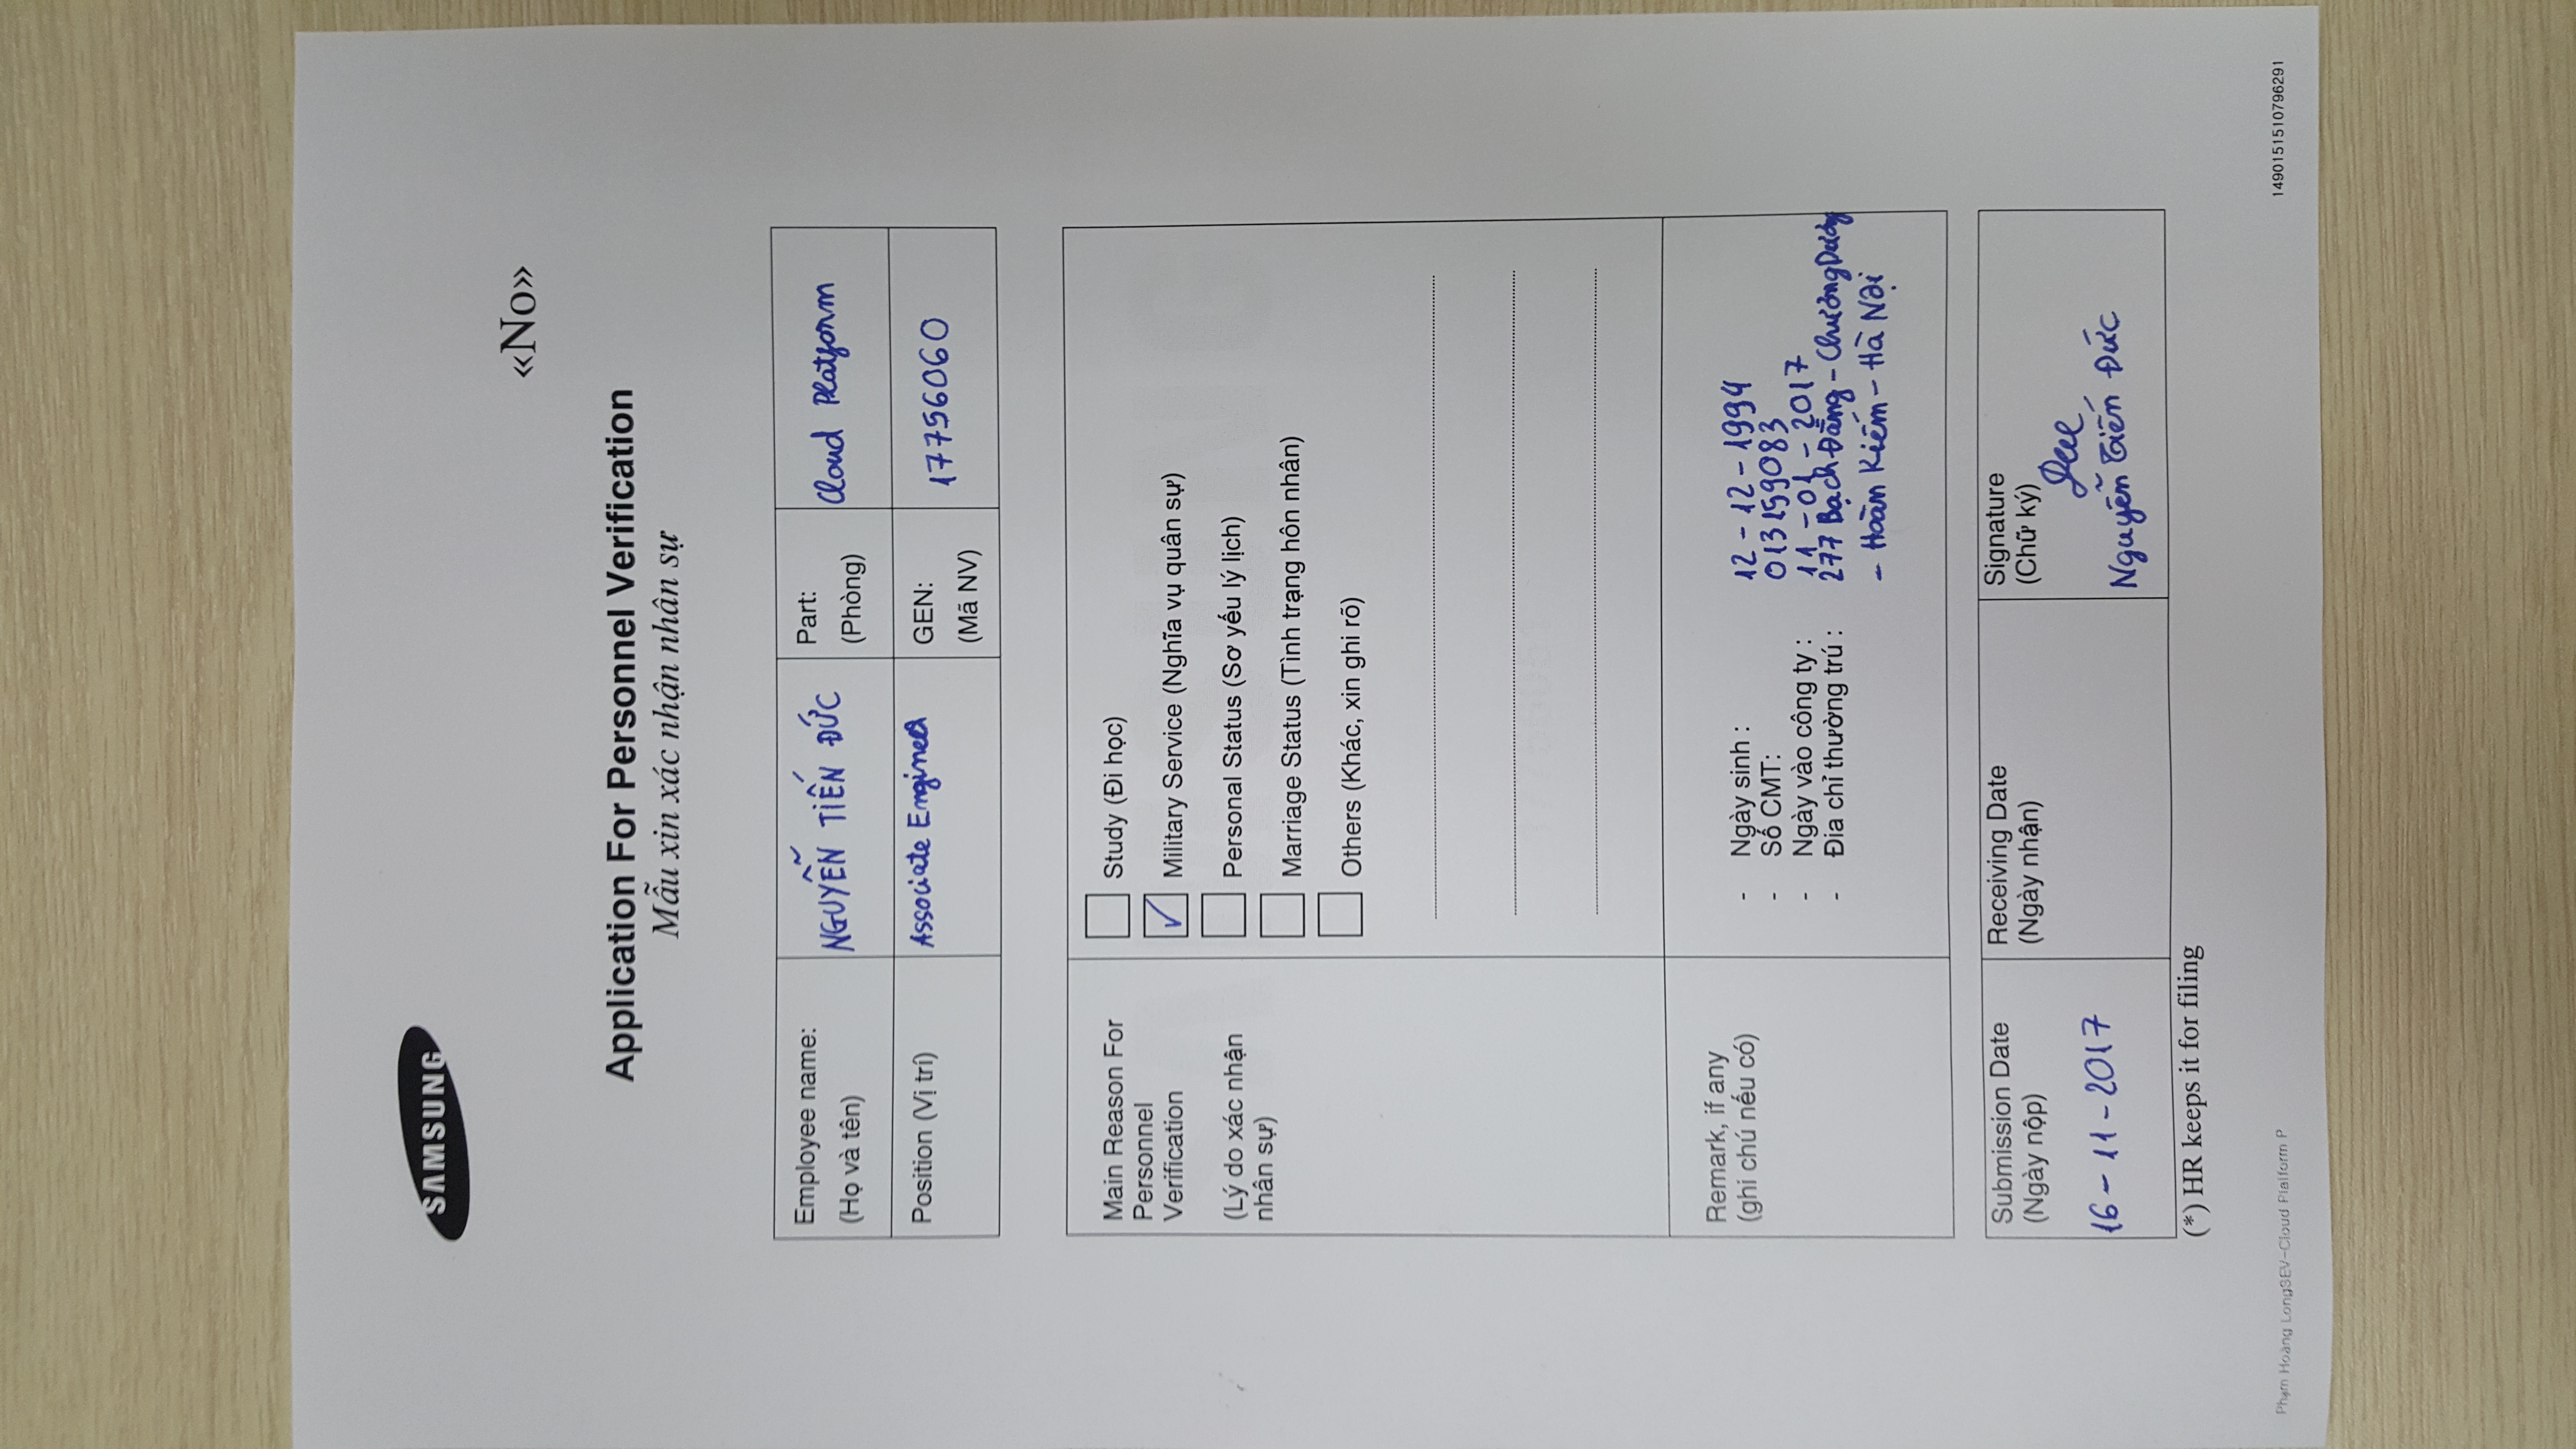 SAMSUNG
«No»
Application For Personnel Verification
Mẫu xin xác nhận nhân sự
Employee name:
(Họ và tên)
NGUYỄN TIẾN ĐỨC
Part:
(Phòng)
Cloud Platform
Position (Vị trí)
Associate Engineer
GEN:
(Mã NV)
17756060
Main Reason For
Personnel
Verification
(Lý do xác nhận
nhân sự)
Study (Đi học)
✓ Military Service (Nghĩa vụ quân sự)
Personal Status (Sơ yếu lý lịch)
Marriage Status (Tình trạng hôn nhân)
Others (Khác, xin ghi rõ)
Remark, if any
(ghi chú nếu có)
- Ngày sinh : 12-12-1994
- Số CMT: 013159083
- Ngày vào công ty : 11-01-2017
- Đia chỉ thường trú : 277 Bạch Đằng - Chương Dương
- Hoàn Kiếm - Hà Nội
Submission Date
(Ngày nộp)
16-11-2017
Receiving Date
(Ngày nhận)
Signature
(Chữ ký)
Đức
Nguyễn Tiến Đức
(*) HR keeps it for filing
Phạm Hoàng LongSEV-Cloud Platform P
1490151510796291